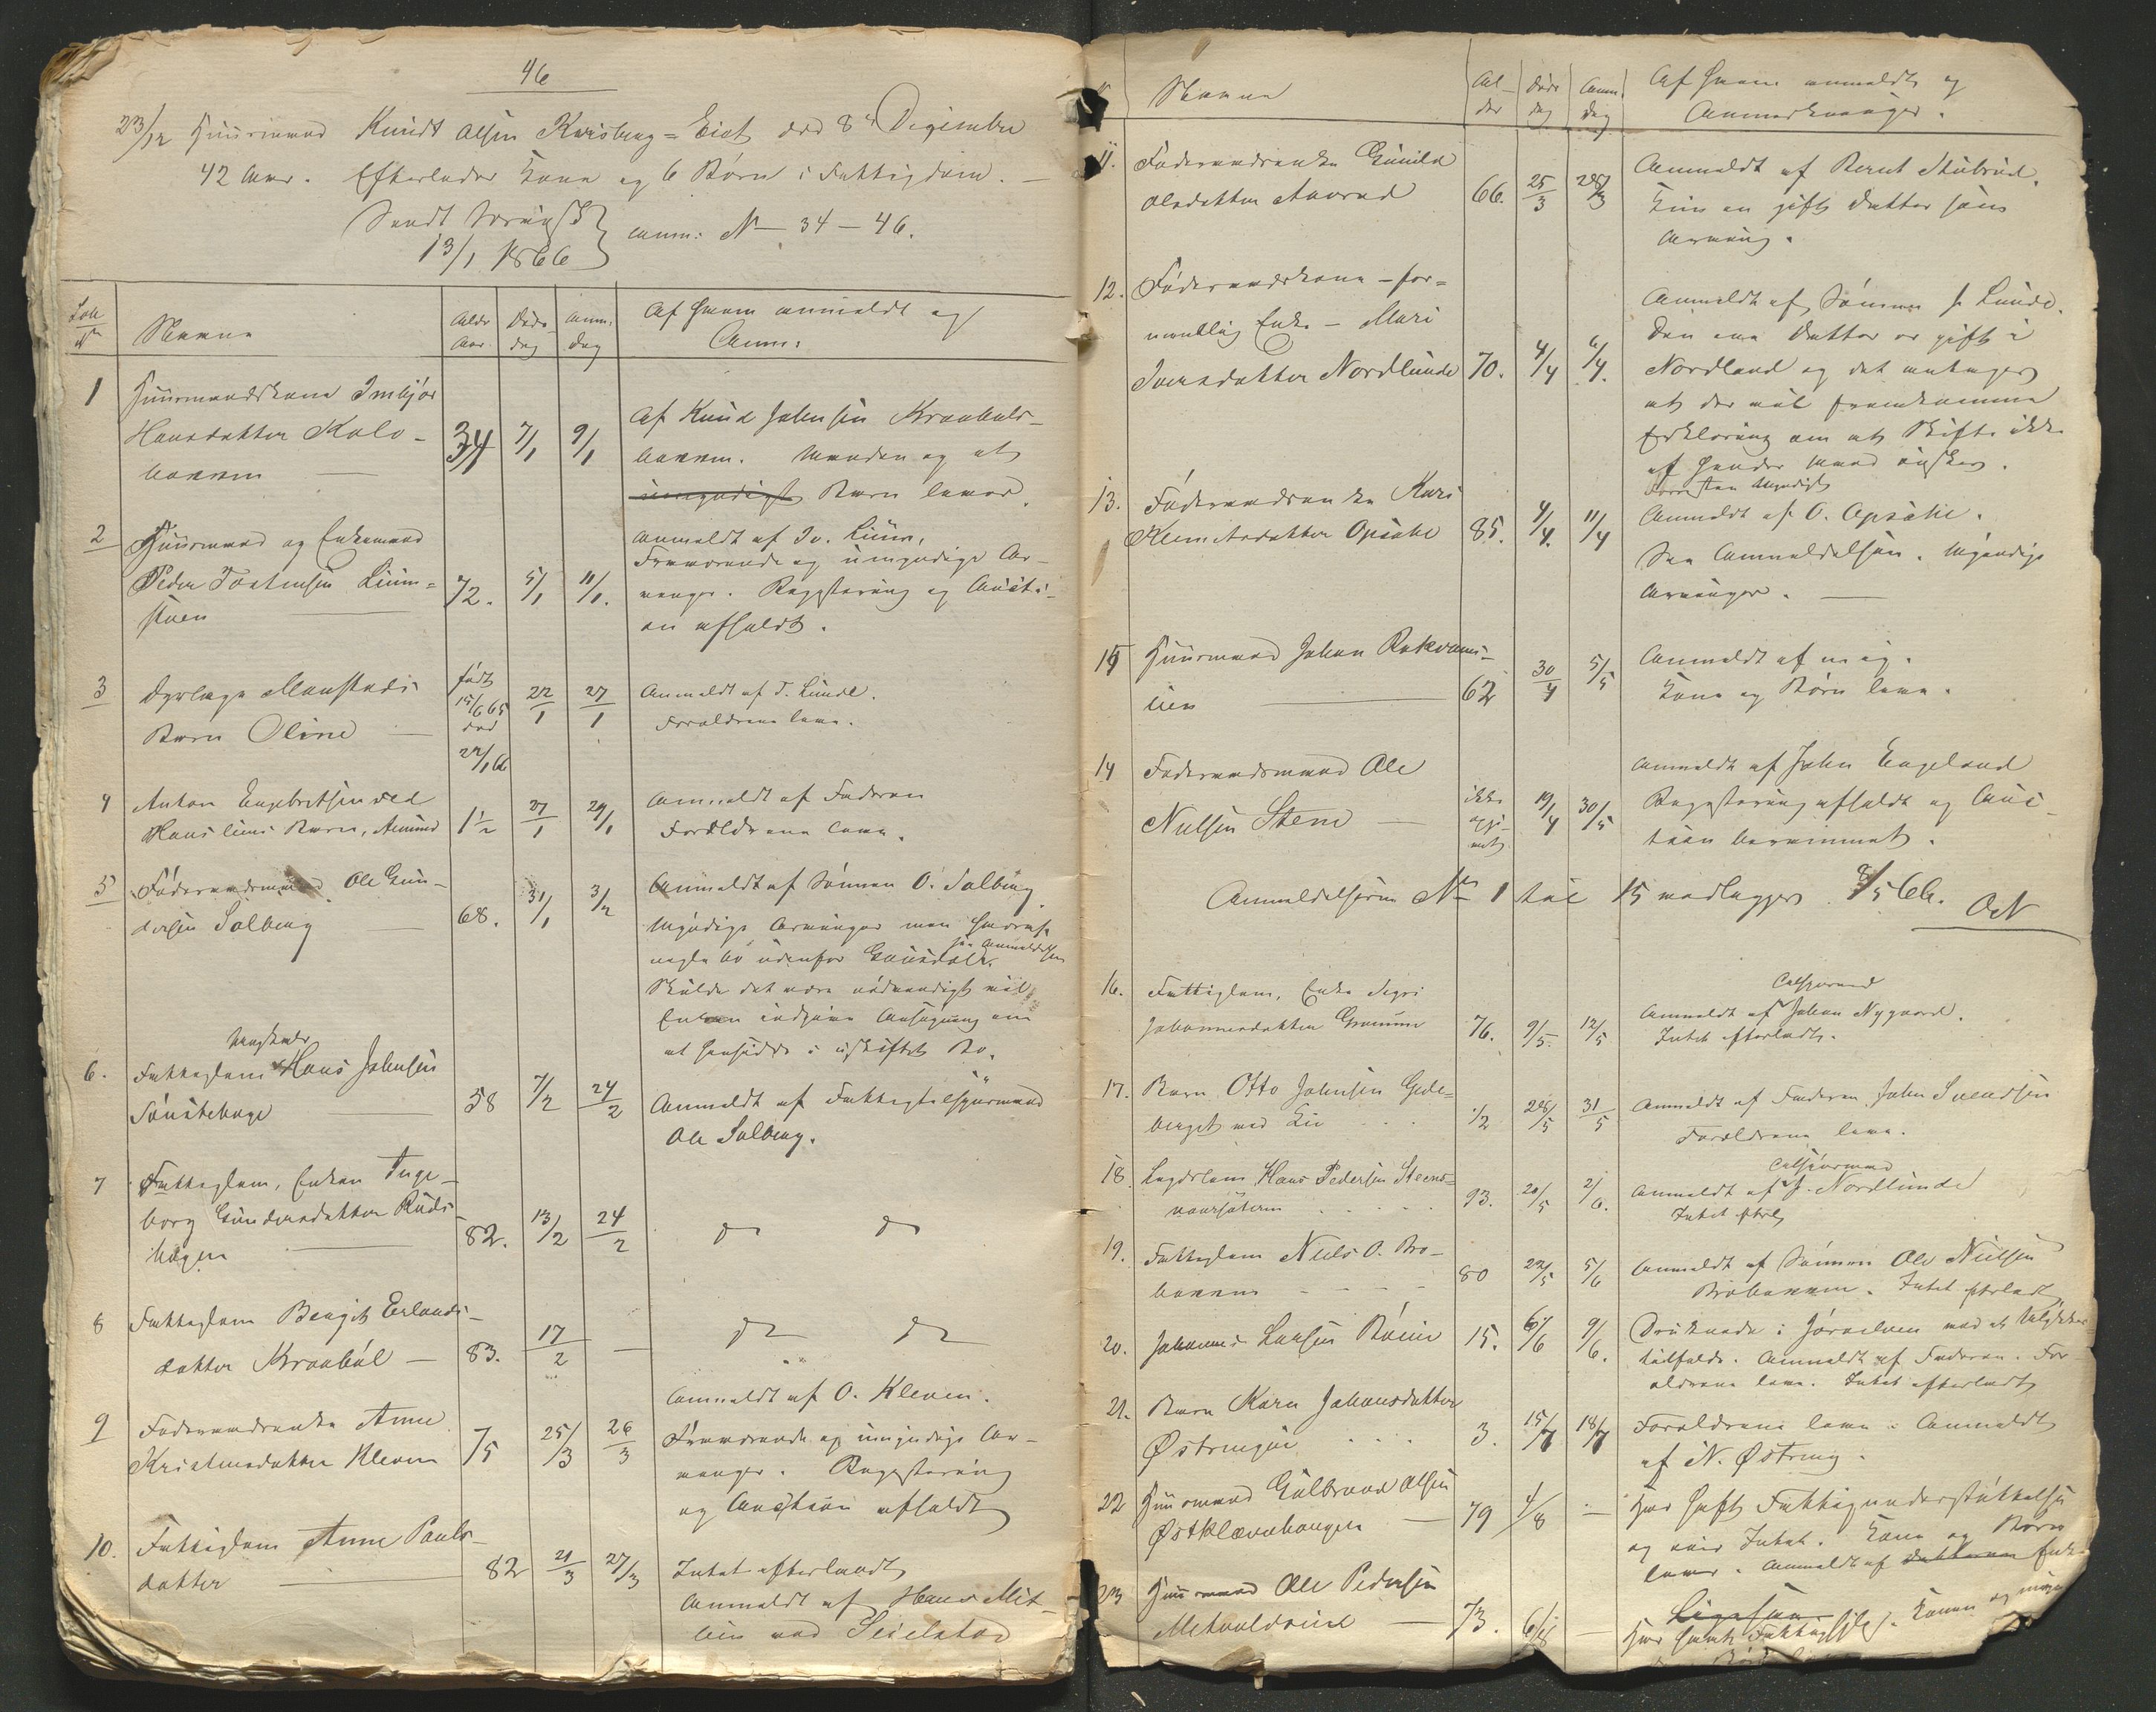 46
23/12 Huusmand Knudt Olsen Kvisberg=Eiet død 8de December
42 Aar. Efterlader Kone og 6 Børn i Fattigdom. —
Sendt Sorenskr.
13/1 1866 } anm: No 34 – 46.
Løb No Navne Alder Aar Døds dag Anm. dag Af hvem anmeldt og Anm:
1 Huusmandskone Imbjør
Hansdatter Kolo-
bakken — 34 7/1 9/1 Af Knud Johnsen Kraabøls-
bakken. Manden og et
umyndigt Barn lever.
2 Huusmand og Enkemand
Peder Tostensen Lium-
stuen 72. 5/1 11/1. Anmeldt af Iv. Lium.
Fraværende og umyndige Ar-
vinger. Registrering og Aucti-
on afholdt.
3 Dyrlæge Maastads
Barn Oline — født 15/6 65 død 22/1 66 22/1 27/1 Anmeldt af T. Lunde.
Forældrene leve.
4 Anton Engebretsen ved
Hanslius Barn, Amund 1½ 27/1 29/1 Anmeldt af Faderen
Forældrene leve.
5 Føderaadsmand Ole Gun-
dersen Solberg — 68. 31/1 3/2 Anmeldt af Sønnen O. Solberg
Myndige Arvinger men hvoraf
nogle bo udenfor Gausdal. see Anmeldelsen
Skulde det være nødvendigt vil
Enken indgive Ansøgning om
at hensidde i uskiftet Bo.
6. Fattiglem Ungkarl Hans Johnsen
Sønstehage — 58 7/2 24/2 Anmeldt af Fattigtilsynsmand
Ole Solberg.
7 Fattiglem, Enken Inge-
borg Gundersdatter Ruds-
hagen — 82. 13/2 24/2 do do
8 Fattiglem Bengit Erlands-
datter Kraabøl — 83. 17/2 — do do
9 Føderaadsenke Anne
Kristensdatter Kleven 75 25/3 26/3 Anmeldt af O. Kleven.
Fraværende og umyndige Ar-
vinger. Registrering
og Auction afholdt
10. Fattiglem Anne Pauls-
datter — 82 21/3 27/3 Intet efterladt
Anmeldt af Hans Mit-
lien ved Seielstad
Navne Alder Døds dag Anm. dag Af hvem anmeldt og
Anmærkninger.
11. Føderaadsenke Gunild
Olsdatter Aavrud 66. 25/3 28/3 Anmeldt af Bernt Stubrud.
Kun en gift Datter som
Arving.
12. Føderaadskone – for-
mentlig Enke – Mari
Iversdatter Nordlunde 70. 4/4 6/4. Anmeldt af Sønnen P. Lunde.
Den ene Datter er gift i
Nordland og det antages
at der vil fremkomme
Erklæring om at Skifte ikke
af hendes Mand ønskes.
Forresten Myndige
13. Føderaadsenke Kari
Klemetsdatter Opsahl 85. 4/4. 11/4 Anmeldt af O. Opsahl.
See Anmeldelsen. Myndige
Arvinger. —
15 Huusmand Johan Rokvam-
lien — 62 30/4 5/5 Anmeldt af mig.
Kone og Børn leve.
14 Føderaadsmand Ole
Nielsen Steine — ikke opgi- vet 19/4 30/5 Anmeldt af John Engeland
Registrering afholdt og Auc-
tion berammet.
Anmeldelserne No 1 til 15 medlagges 8/5 66. OeN
16. Fattiglem, Enke Sigri
Johannesdatter Gramme 76. 9/5. 12/5 Tilsynsmand
Anmeldt af Johan Nygaard.
Intet efterladt.
17. Barn Otto Johnsen Gede-
berget ved Lie ½ 28/5 31/5 Anmeldt af Faderen John Svendsen
Forældrene leve.
18. Lægdslem Hans Pedersen Steens-
noursæteren 93. 20/5 2/6. Tilsynsmand
Anmeldt af P. Nordlunde
Intet efterl.
19. Fattiglem Niels O. Bro-
bakken 80 22/5 5/6 Anmeldt af Sønnen Ole Nielsen
Brobakken. Intet efterladt
20. Johannes Larsen Bøeie 15. 6/6 9/6. Druknede i Jøraelven ved et Ulykkes
tilfælde. Anmeldt af Faderen. For-
ældrene leve. Intet efterladt
21. Barn Karn Johansdatter
Østringeie 3. 15/7 18/7 Forældrene leve. Anmeldt
af N. Østring.
22 Huusmand Gulbrand Olsen
Østklævehaugen — 79 4/8 — Har havt Fattigunderstøttelse
og eier Intet. Kone og Børn
lever. Anmeldt af Datteren Enke
23 Huusmand Ole Pedersen
Metvoldseie — 73. 6/8 — Ligesaa
Har havt Fattighjelp. Konen og